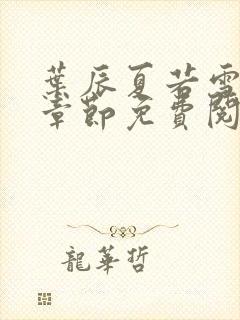 葉辰夏若雪
章節免費閱
龍華哲